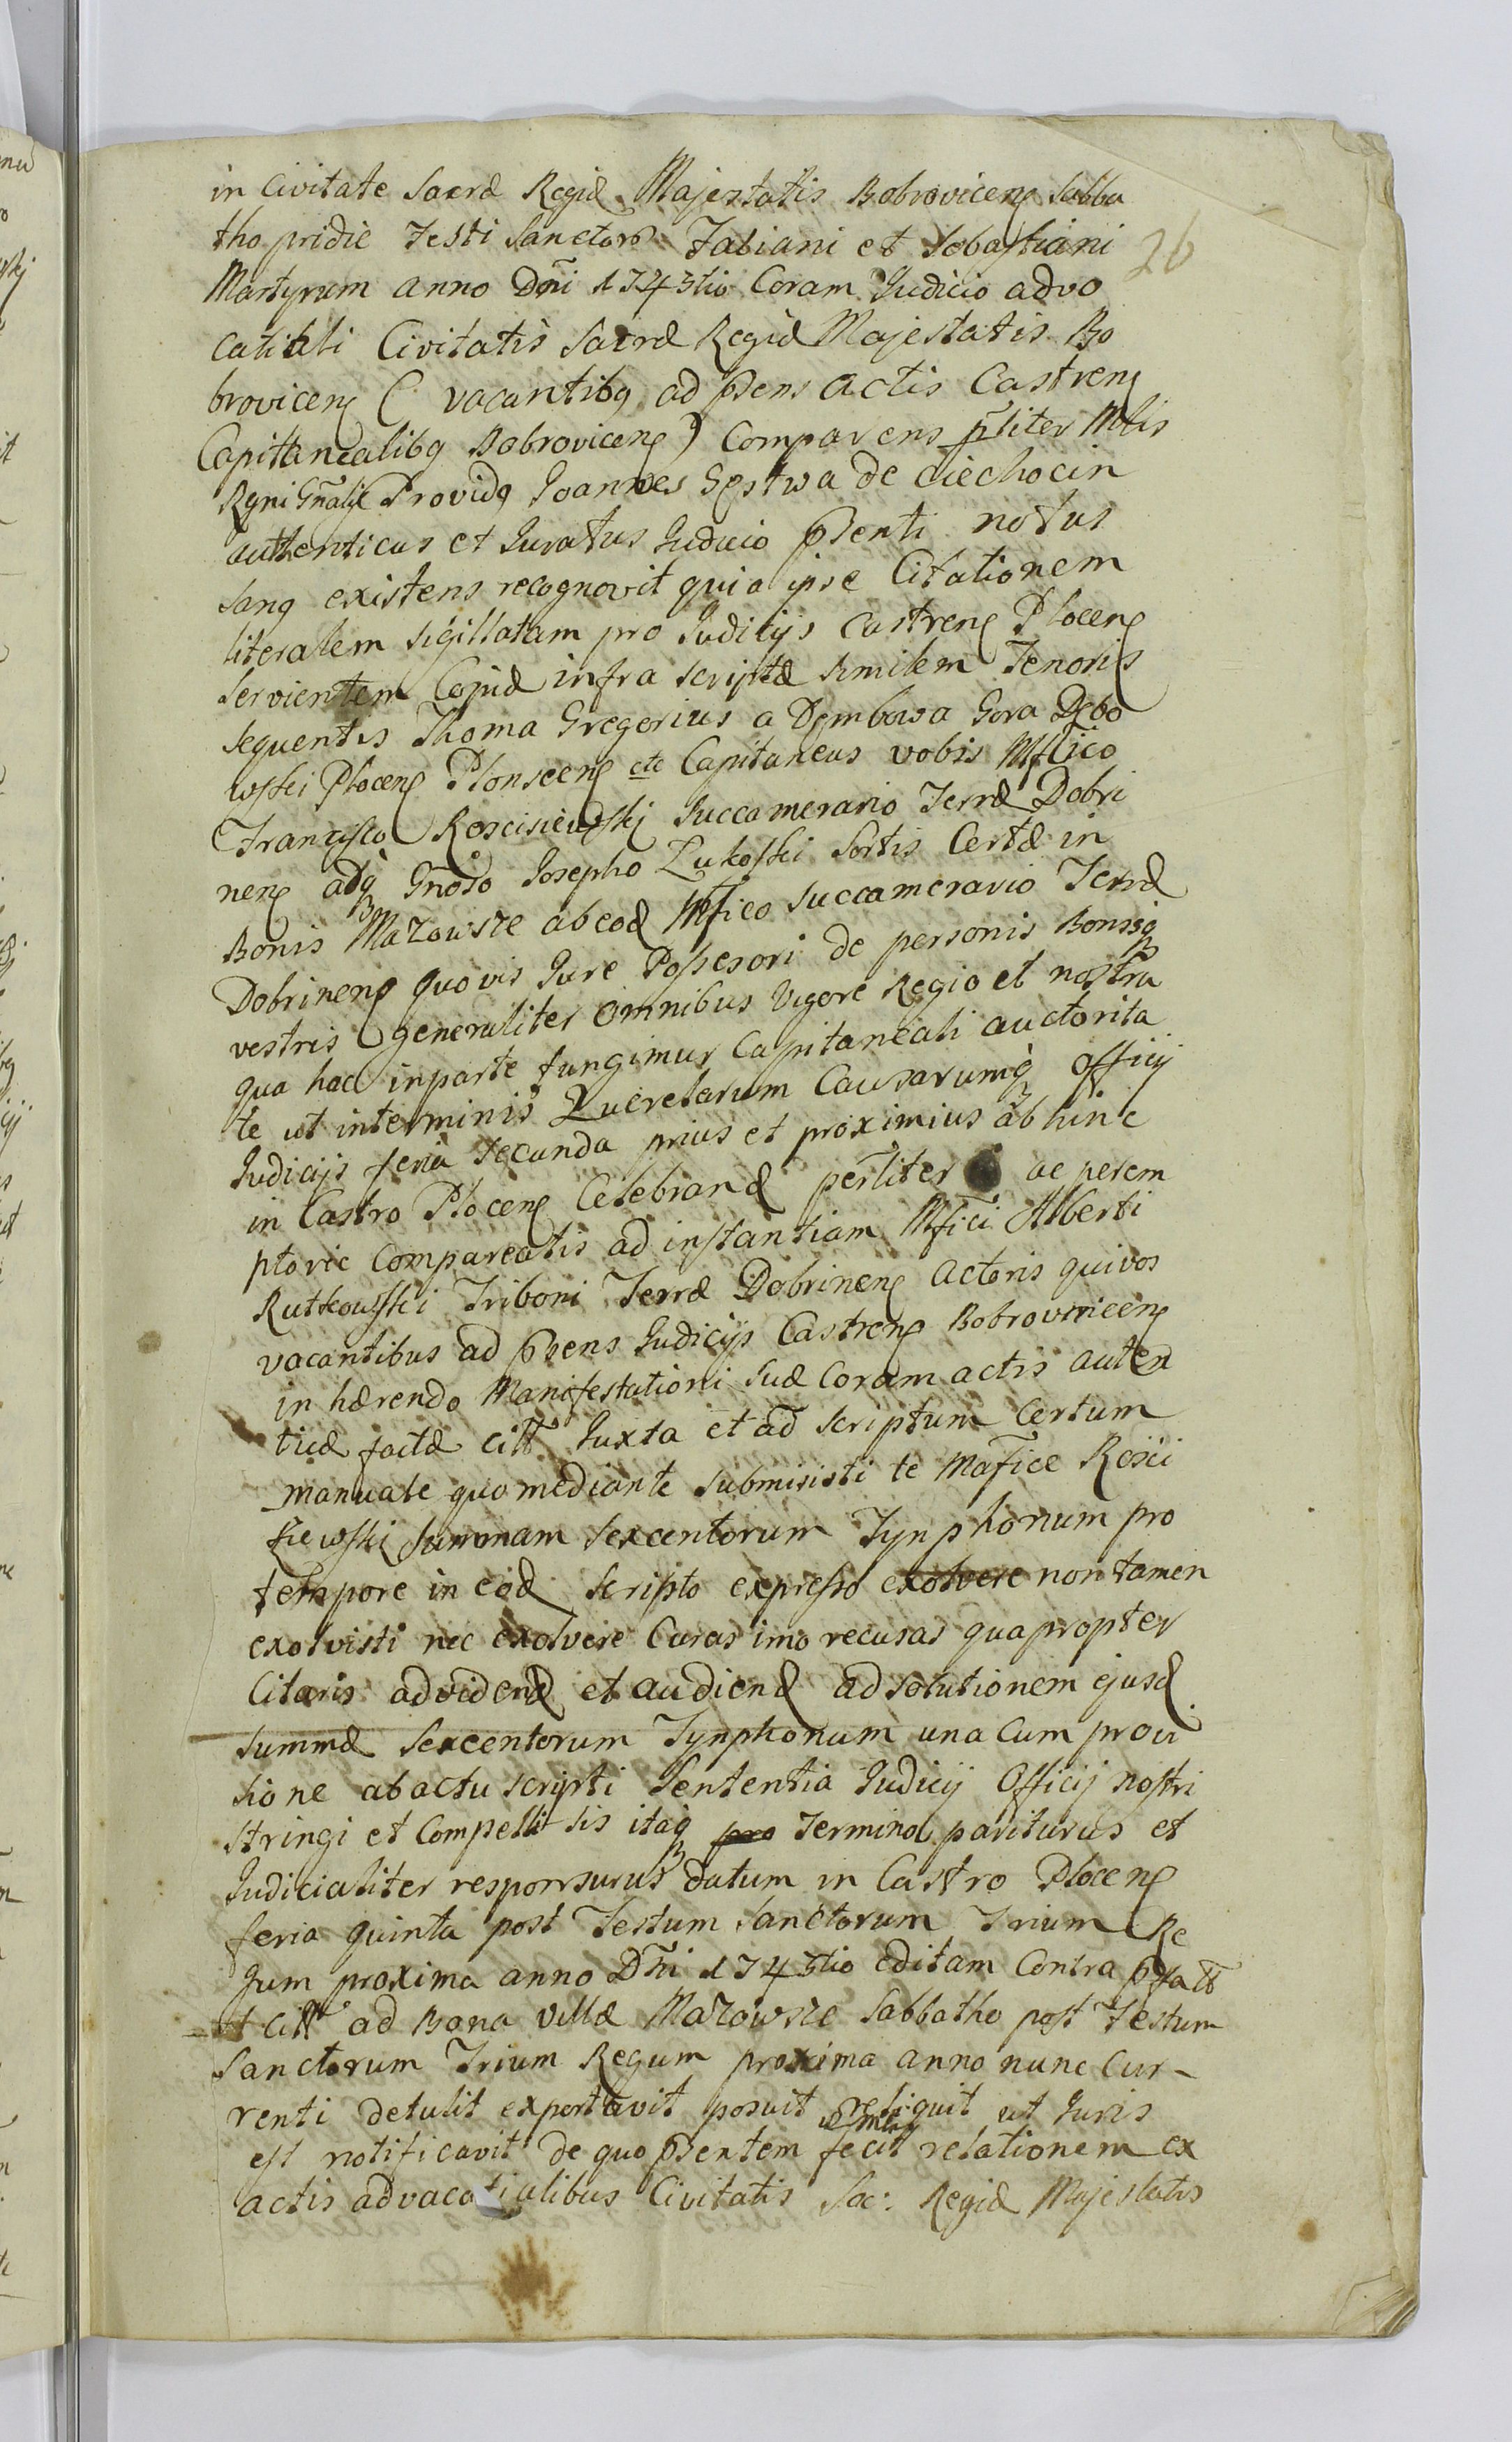 in Civitate Sacræ Regiæ Majestatis Bobrovicen Sabba
26
tho pridie Festi Sanctorū Fabiani et Sebastiani
Martyrum anno Dn̄i 1743tio Coram Judicio advo
catiali Civitatis Sacræ Regiæ Majestatis Bo
brovicen ( vacantibq ad pn̄s actis Castren
Capitanealibq Bobrovicen) Comparens prliter Mtis
Rgni Gn̄alis Providq Joannes de Ciechocin
authenticus et Juratus Judicio pn̄ti notus
sanq existens recognovit quia ipse Citationem
literalem sigillatam pro Judicijs Castren Plocen
servientem Copiæ infra scriptæ similem Tenoris
sequentis Thoma Gregorius a Dembowa Gora Dębo
wski Plocen Plonscen etc Capitaneus vobis Mfico
Francisco Roscisiewskj Succamerario Terræ Dobri
nen adq Gn̄oso Josepho Lukoski Sortis Certæ in
Bonis Mazowsze ab eod Mfico Succamerario Terræ
Dobrinen quovis Jure Possesori de personis Bonisq
vestris generaliter omnibus Vigore Regio et nostra
qua hac inparte fungimur Capitaneali auctorita
te ut interminis Querelarum Causarumq Officij
Judicijs feria secunda prius et proximius ab hinc
in Castro Plocen Celebrand perliter ac perem
ptorie Compareatis ad instantiam Mfici Alberti
Rutkowski Triboni Terræ Dobrinen Actoris qui vos
vacantibus ad pn̄s Judicijs Castren Bobrovnicen
in hærendo Manifestationi suæ Coram actis auten
ticæ factæ citt Juxta et ad scriptum Certum
manuale quo mediante submisisti te Mafice Rosci
szewski summam sexcentorum Tynphonum pro
tempore in eod scripto expresso exolvere non tamen
exolvisti nec exolvere Curas imo recusas quapropter
Citaris ad videnđ et audienđ ad solutionem ejusđ
summæ sexcentorum Tynphonum una Cum provi
sione ab actu scripti Sententia Judicij Officij nostri
stringi et Compelli sis itaq pro Termino pariturus et
Judicialiter responsurus datum in Castro Plocen
feria quinta post Festum Sanctorum Trium Re
gum proxima anno Dn̄i 1743tio editam Contra pfatt
et citt ad Bona Villæ Mazowsze Sabbatho post Festum
Sanctorum Trium Regum proxima anno nunc Cur-
renti detulit exportavit posuit reliquit ut Juris
est notificavit de quo pn̄tem fecit relationem ex
actis advocatialibus Civitatis Sac: Regiæ Majestatis